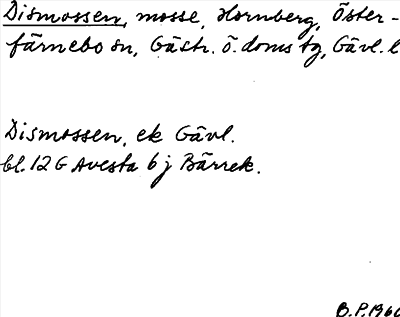 Dismossen, mosse, Hornberg, Öster-
färnebo sn, Gästr. ö. doms tg, Gävl. l
Dismossen, ek Gävl.
bl. 12 G Avesta 6 j Bärrek.
B.P. 1960